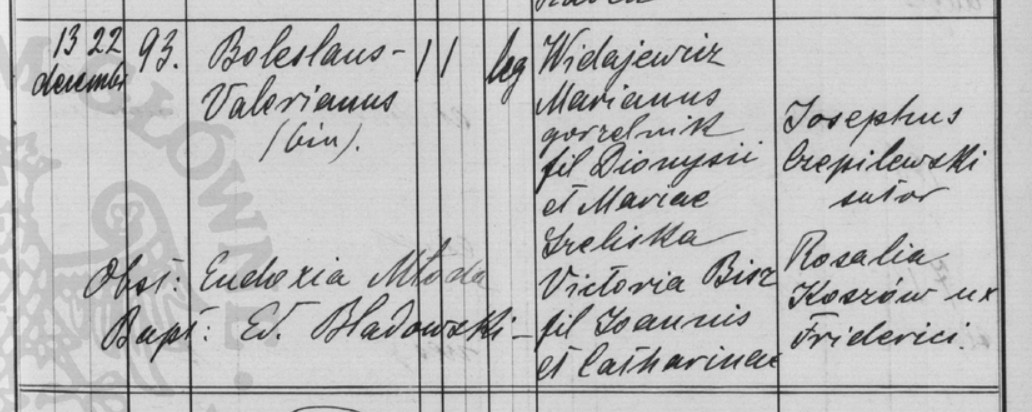 13 22 93. Boleslaus- 11 leg Widajewicz
decembr Valerianus Marianus
(bin). gorzelnik
fil Dionysii
et Mariae
Szeliska
Victoria Bisz
fil Joannis
et Catharinae
Josephus
Czepilewski
sutor
Rosalia
Koszów ux
Friderici.
Obst: Eudoxia Młoda
Bapt: Ed. Bladowski-
GŁÓWNE